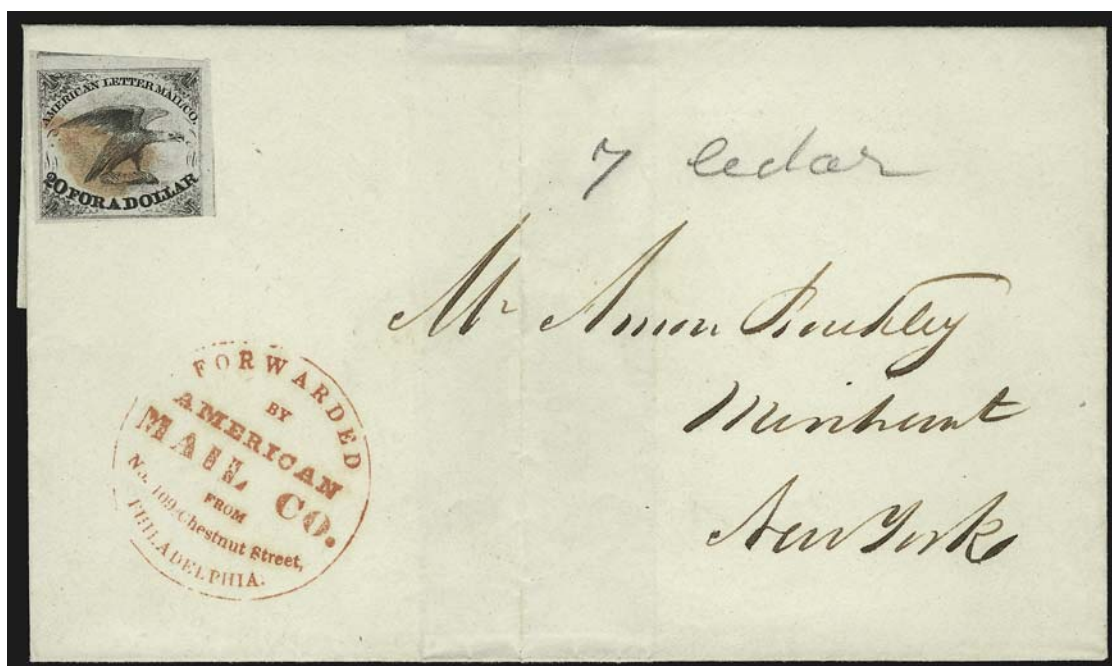 AMERICAN LETTER MAIL CO.
20 FOR A DOLLAR
7 Cedar
Mr
New York
FORWARDED
BY
AMERICAN
MAIL CO.
FROM
No. 109 Chestnut Street,
PHILADELPHIA.